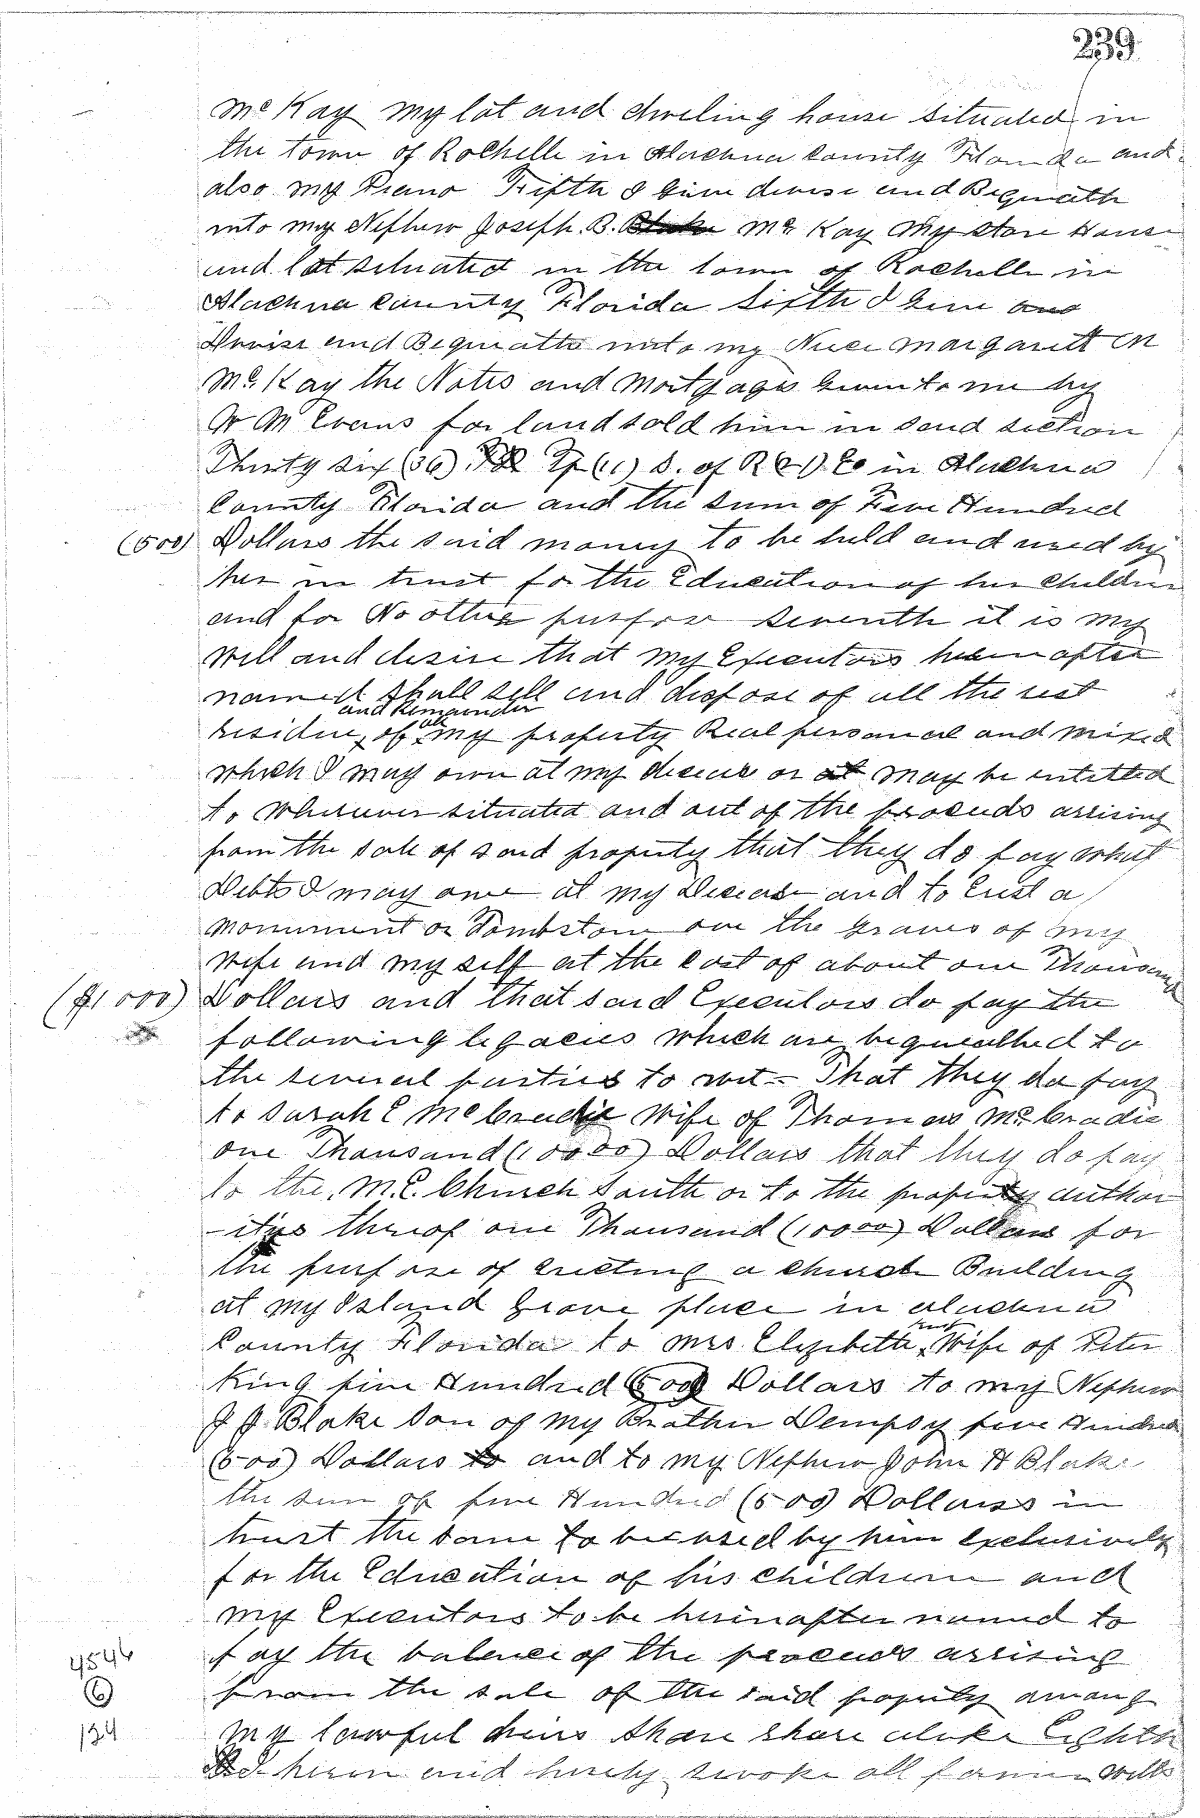 239
McKay my lot and dwelling house situated in
the town of Rochelle in Alachua county Florida and
also my Piano Fifth I Give devise and Bequeath
unto my Nephew Joseph. B. Blake McKay my store House
and lot situated in the town of Rochelle in
Alachua county Florida Sixth I Give and
Devise and Bequeath unto my Niece Margarett M
McKay the Notes and Mortgages Given to me by
W M Evans for land sold him in said section
Thirty six (36) Tp (11) S. of R in Alachua
County Florida and the sum of Five Hundred
(500) Dollars the said money to be held and used by
her in trust for the Education of her Children
and for No other purpose Seventh it is my
will and desire that my Executors hereinafter
named shall sell and dispose of all the rest
and Remainder
residue, of all my property Real personal and mixed
which I may own at my decease or at may be entitled
to wherever situated and out of the proceeds arrising
from the sale of said property that they do pay what
Debts I may owe at my Decease and to Erect a
monument or Tombstone over the graves of my
wife and my self at the cost of about one Thousand
($1000) Dollars and that said Executors do pay the
following legacies which are bequeathed to
the several parties to wit - That they do pay
to Sarah E McCradie Wife of Thomas McCradie
one Thousand (1000 00) Dollars that they do pay
to the. M. E. Church South or to the property author
-ities thereof one Thousand (1000 00) Dollars for
the purpose of erecting a church Building
at my Island Grove place in Alachua
County Florida to Mrs Elizabeth, Wife of Peter
King five Hundred (500) Dollars to my Nephew
J J Blake Son of my Brother Dempsy five Hundred
(500) Dollars to and to my Nephew John H Blake
the sum of five Hundred (500) Dollars in
trust the same to be used by him exclusively
for the Education of his children and
my Executors to be hereinafter named to
pay the balence of the proceeds arrising
from the sale of the said property among
my lawful heirs share share alike Eighth
I herein and hereby revoke all former wills
4546
6
134